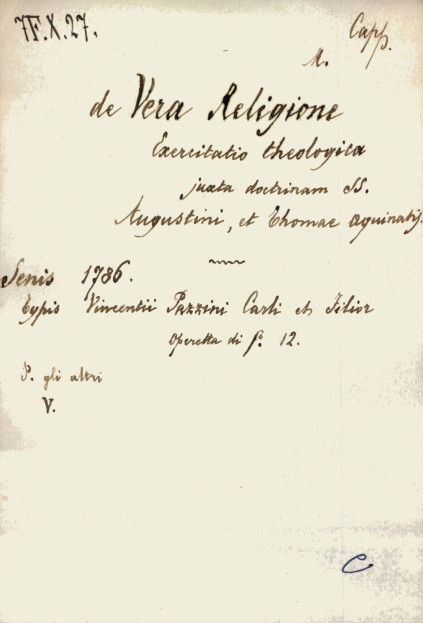 7F.X.27.
Capp.
M.
de Vera Religione
Exercitatio theologica
juxta doctrinam SS.
Augustini, et Thomae Aquinatis.
Senis 1786.
Typis Vincentii Pazzini Carli et Filior
Operetta di f. 12.
P. gli altri
V.
C